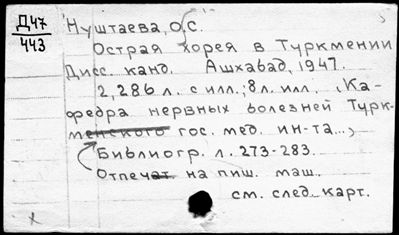 Д47
443
Нуштаева, О.С.
Острая хорея в Туркмении
Дисс. канд. Ашхабад, 1947.
2,286 л. с илл.; 8 л. илл. (Ка-
федра нервных болезней Турк-
менского гос. мед. ин-та...)
Библиогр. л. 273-283.
Отпечат. на пиш. маш.
см. след. карт.